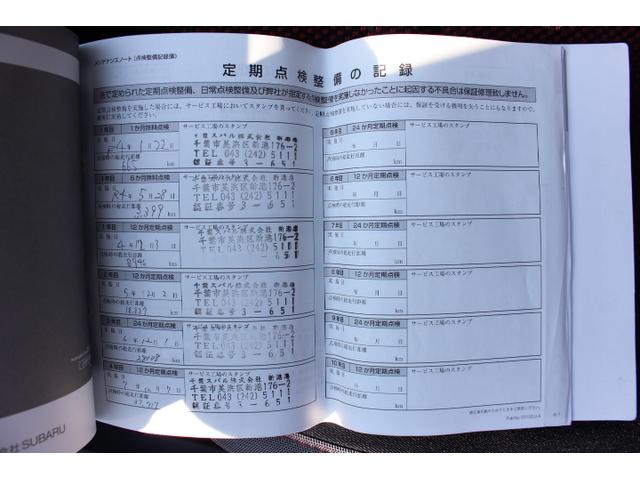 メンテナンスノート(点検整備記録簿)
定期点検整備の記録
法で定められた定期点検整備、日常点検整備及び弊社が指定する点検整備を実施しなかったことに起因する不具合は保証修理致しません。
1ヵ月無料点検
サービス工場のスタンプ
R4年 1月 22日
千葉スバル株式会社 新港店
千葉市美浜区新港176-2
TEL 043 (242) 5111
認証番号 3-651
6か月無料点検
サービス工場のスタンプ
R4年 5月 28日
千葉市美浜区新港176-2
TEL 043 (242) 5111
認証番号 3-651
1年目 12か月定期点検
サービス工場のスタンプ
千葉市美浜区新港176-2
TEL 043 (242) 5111
認証番号 3-651
2年目 12か月定期点検
サービス工場のスタンプ
5年 12月 2日
千葉スバル株式会社 新港店
千葉市美浜区新港176-2
TEL 043 (242) 5111
認証番号 3-651
3年目 24か月定期点検
サービス工場のスタンプ
6年 12月 1日
28008 km
千葉スバル株式会社 新港店
千葉市美浜区新港176-2
TEL 043 (242) 5111
認証番号 3-651
4年目 12か月定期点検
サービス工場のスタンプ
千葉スバル株式会社 新港店
千葉市美浜区新港176-2
TEL 043 (242) 5111
認証番号 3-651
5年目 24か月定期点検
サービス工場のスタンプ
実施日
年 月 日
点検時の総走行距離
km
6年目 12か月定期点検
サービス工場のスタンプ
実施日
年 月 日
点検時の総走行距離
km
7年目 24か月定期点検
サービス工場のスタンプ
実施日
年 月 日
点検時の総走行距離
km
8年目 12か月定期点検
サービス工場のスタンプ
実施日
年 月 日
点検時の総走行距離
km
9年目 24か月定期点検
サービス工場のスタンプ
実施日
年 月 日
点検時の総走行距離
km
10年目 12か月定期点検
サービス工場のスタンプ
実施日
年 月 日
点検時の総走行距離
km
会社 SUBARU